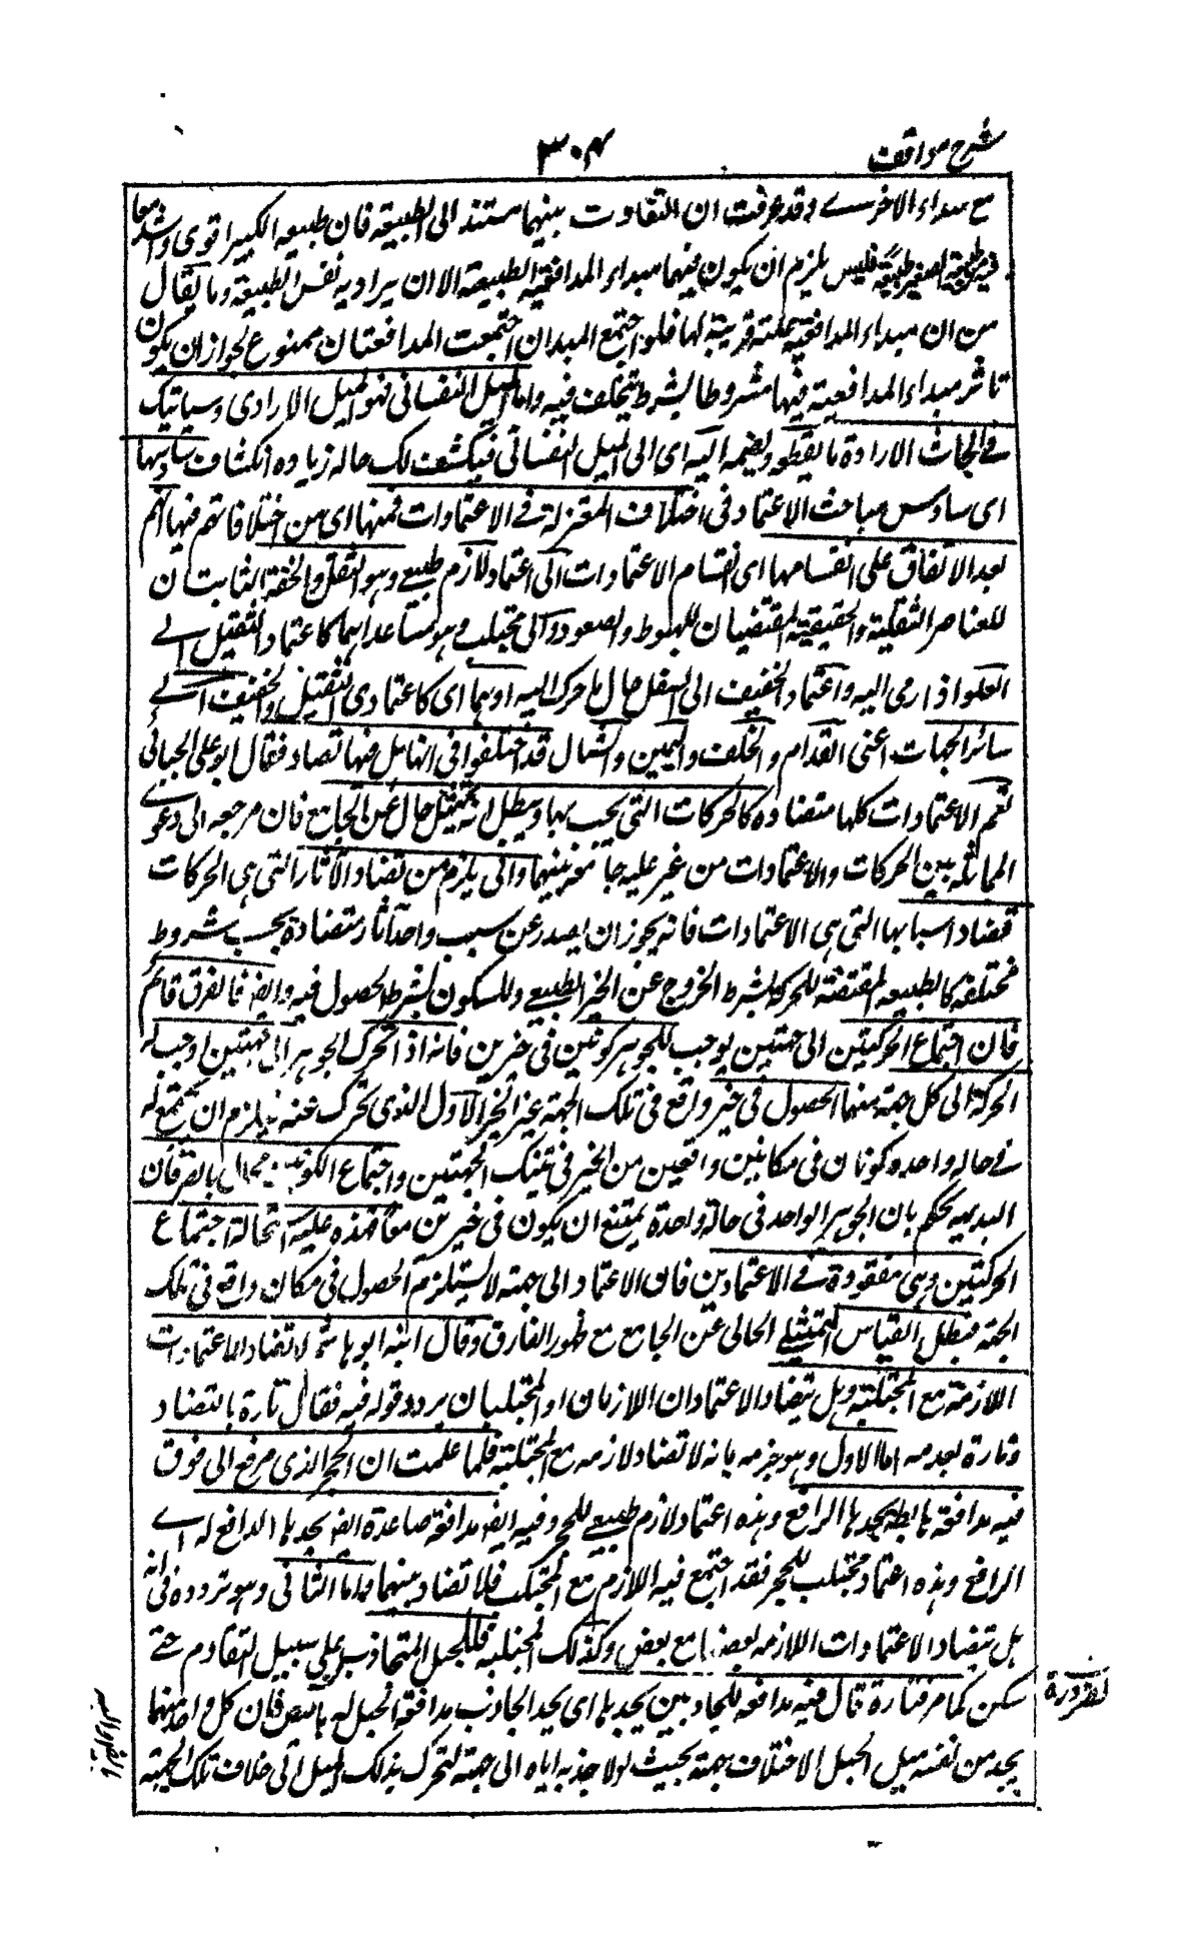 شرح مواقف
٣٠٤
مع مبداء الاخرى وقد عرفت ان التفاوت بينهما مستند الى الطبيعة فان طبيعة الكبير اقوى واشد معاوقة
من طبيعة الصغير فليس يلزم ان يكون فيهما مبداء المدافعة الطبيعية الا ان يراد به نفس الطبيعة وما يقال
من ان مبداء المدافعة علة قريبة لها فلو اجتمع المبدان اجتمعت المدافعتان ممنوع لجواز ان يكون
تاثير مبداء المدافعة فيها مشروطا بشرط يتخلف فيه واما الميل النفسانى فهو الميل الارادى وسياتيك
فى ابحاث الارادة ما يقطعه ويضمه اليه اى الى الميل النفسانى فيكشف لك حاله زيادة انكشاف سادسها
اى سادس مباحث الاعتماد فى اختلاف المعتزلة فى الاعتمادات فمنها اى من اختلافاتهم فيها انهم
بعد الاتفاق على انقسامها اى انقسام الاعتمادات الى اعتماد لازم طبيعى وهو الثقل والخفة الثابتان
للعناصر الثقيلة والخفيفة المقتضيان للهبوط والصعود والى مجتلب وهو ما عداهما كاعتماد الثقيل الى
العلو اذا رمى اليه واعتماد الخفيف الى السفل حال ما حرك اليه او هما اى كاعتمادى الثقيل والخفيف الى
سائر الجهات اعنى القدام والخلف واليمين والشمال قد اختلفوا فى انها هل فيها تضاد فقال ابو على الجبائى
نعم الاعتمادات كلها متضادة كالحركات التى يجب بها ويبطل انه تمثيل خال عن الجامع فان مرجعه الى دعوى
المماثلة بين الحركات والاعتمادات من غير علية جامعة بينهما وانى يلزم من تضاد الآثار التى هى الحركات
تضاد اسبابها التى هى الاعتمادات فانه يجوز ان يصدر عن سبب واحد آثار متضادة بحسب شروط
مختلفة كالطبيعة المقتضية للحركة بشرط الخروج عن الحيز الطبيعى وللسكون بشرط الحصول فيه وايضا فالفرق قائم
فان اجتماع الحركتين الى جهتين يوجب للجوهر كونين فى حيزين فانه اذا تحرك الجوهر الى جهتين اوجب له
الحركة الى كل جهة منهما الحصول فى حيز واقع فى تلك الجهة غير الحيز الاول الذى تحرك عنه فيلزم ان يجتمع له
فى حالة واحدة كونان فى مكانين واقعين من الحيز فى تينك الجهتين واجتماع الكونين محال بالضرورة فان
البديهة تحكم بان الجوهر الواحد فى حالة واحدة يمتنع ان يكون فى حيزين معا فهذه علية استحالة اجتماع
الحركتين وهى مفقودة فى الاعتمادين فان الاعتماد الى جهة لا يستلزم الحصول فى مكان واقع فى تلك
الجهة فبطل القياس التمثيلى الخالى عن الجامع مع ظهور الفارق وقال ابنه ابو هاشم لا تضاد للاعتمادات
اللازمة مع المجتلبة وهل يتضاد الاعتمادان اللازمان او المجتلبان تردد قوله فيه فقال تارة بالتضاد
وتارة بعدمه اما الاول وهو جزمه بانه لا تضاد لازمه مع المجتلبة فلما علمت ان الحجر الذى يرفع الى فوق
فيه مدافعة هابطة يجدها الرافع وهذه اعتماد لازم طبيعى للحجر وفيه ايضا مدافعة صاعدة ايضا يجدها الدافع له اى
الرافع وهذه اعتماد مجتلب للحجر فقد اجتمع فيه اللازم مع المجتلب فلا تضاد بينهما واما الثانى وهو تردده فى انه
هل يتضاد الاعتمادات اللازمة بعضها مع بعض وكذلك المجتلبة فللحبل المتجاذب على سبيل التقاوم حتى
سكن كما مر فتارة قال فيه مدافعة للجاذبين يجدها اى يجد الجاذب مدافعة الحبل له فان كل واحد منهما
يجد من نفسه ميل الحبل الى خلاف جهة بحيث لولا جذبه اياه الى جهة لتحرك بذلك الميل الى خلاف تلك الجهة